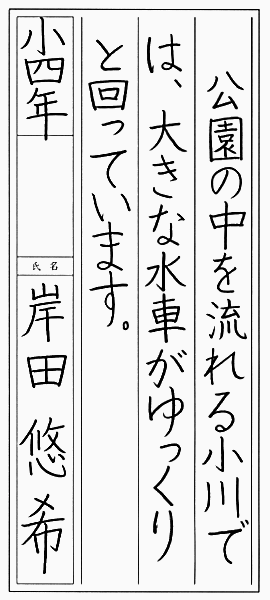 公園の中を流れる小川で
は、大きな水車がゆっくり
と回っています。
小四年
氏名
岸田悠希